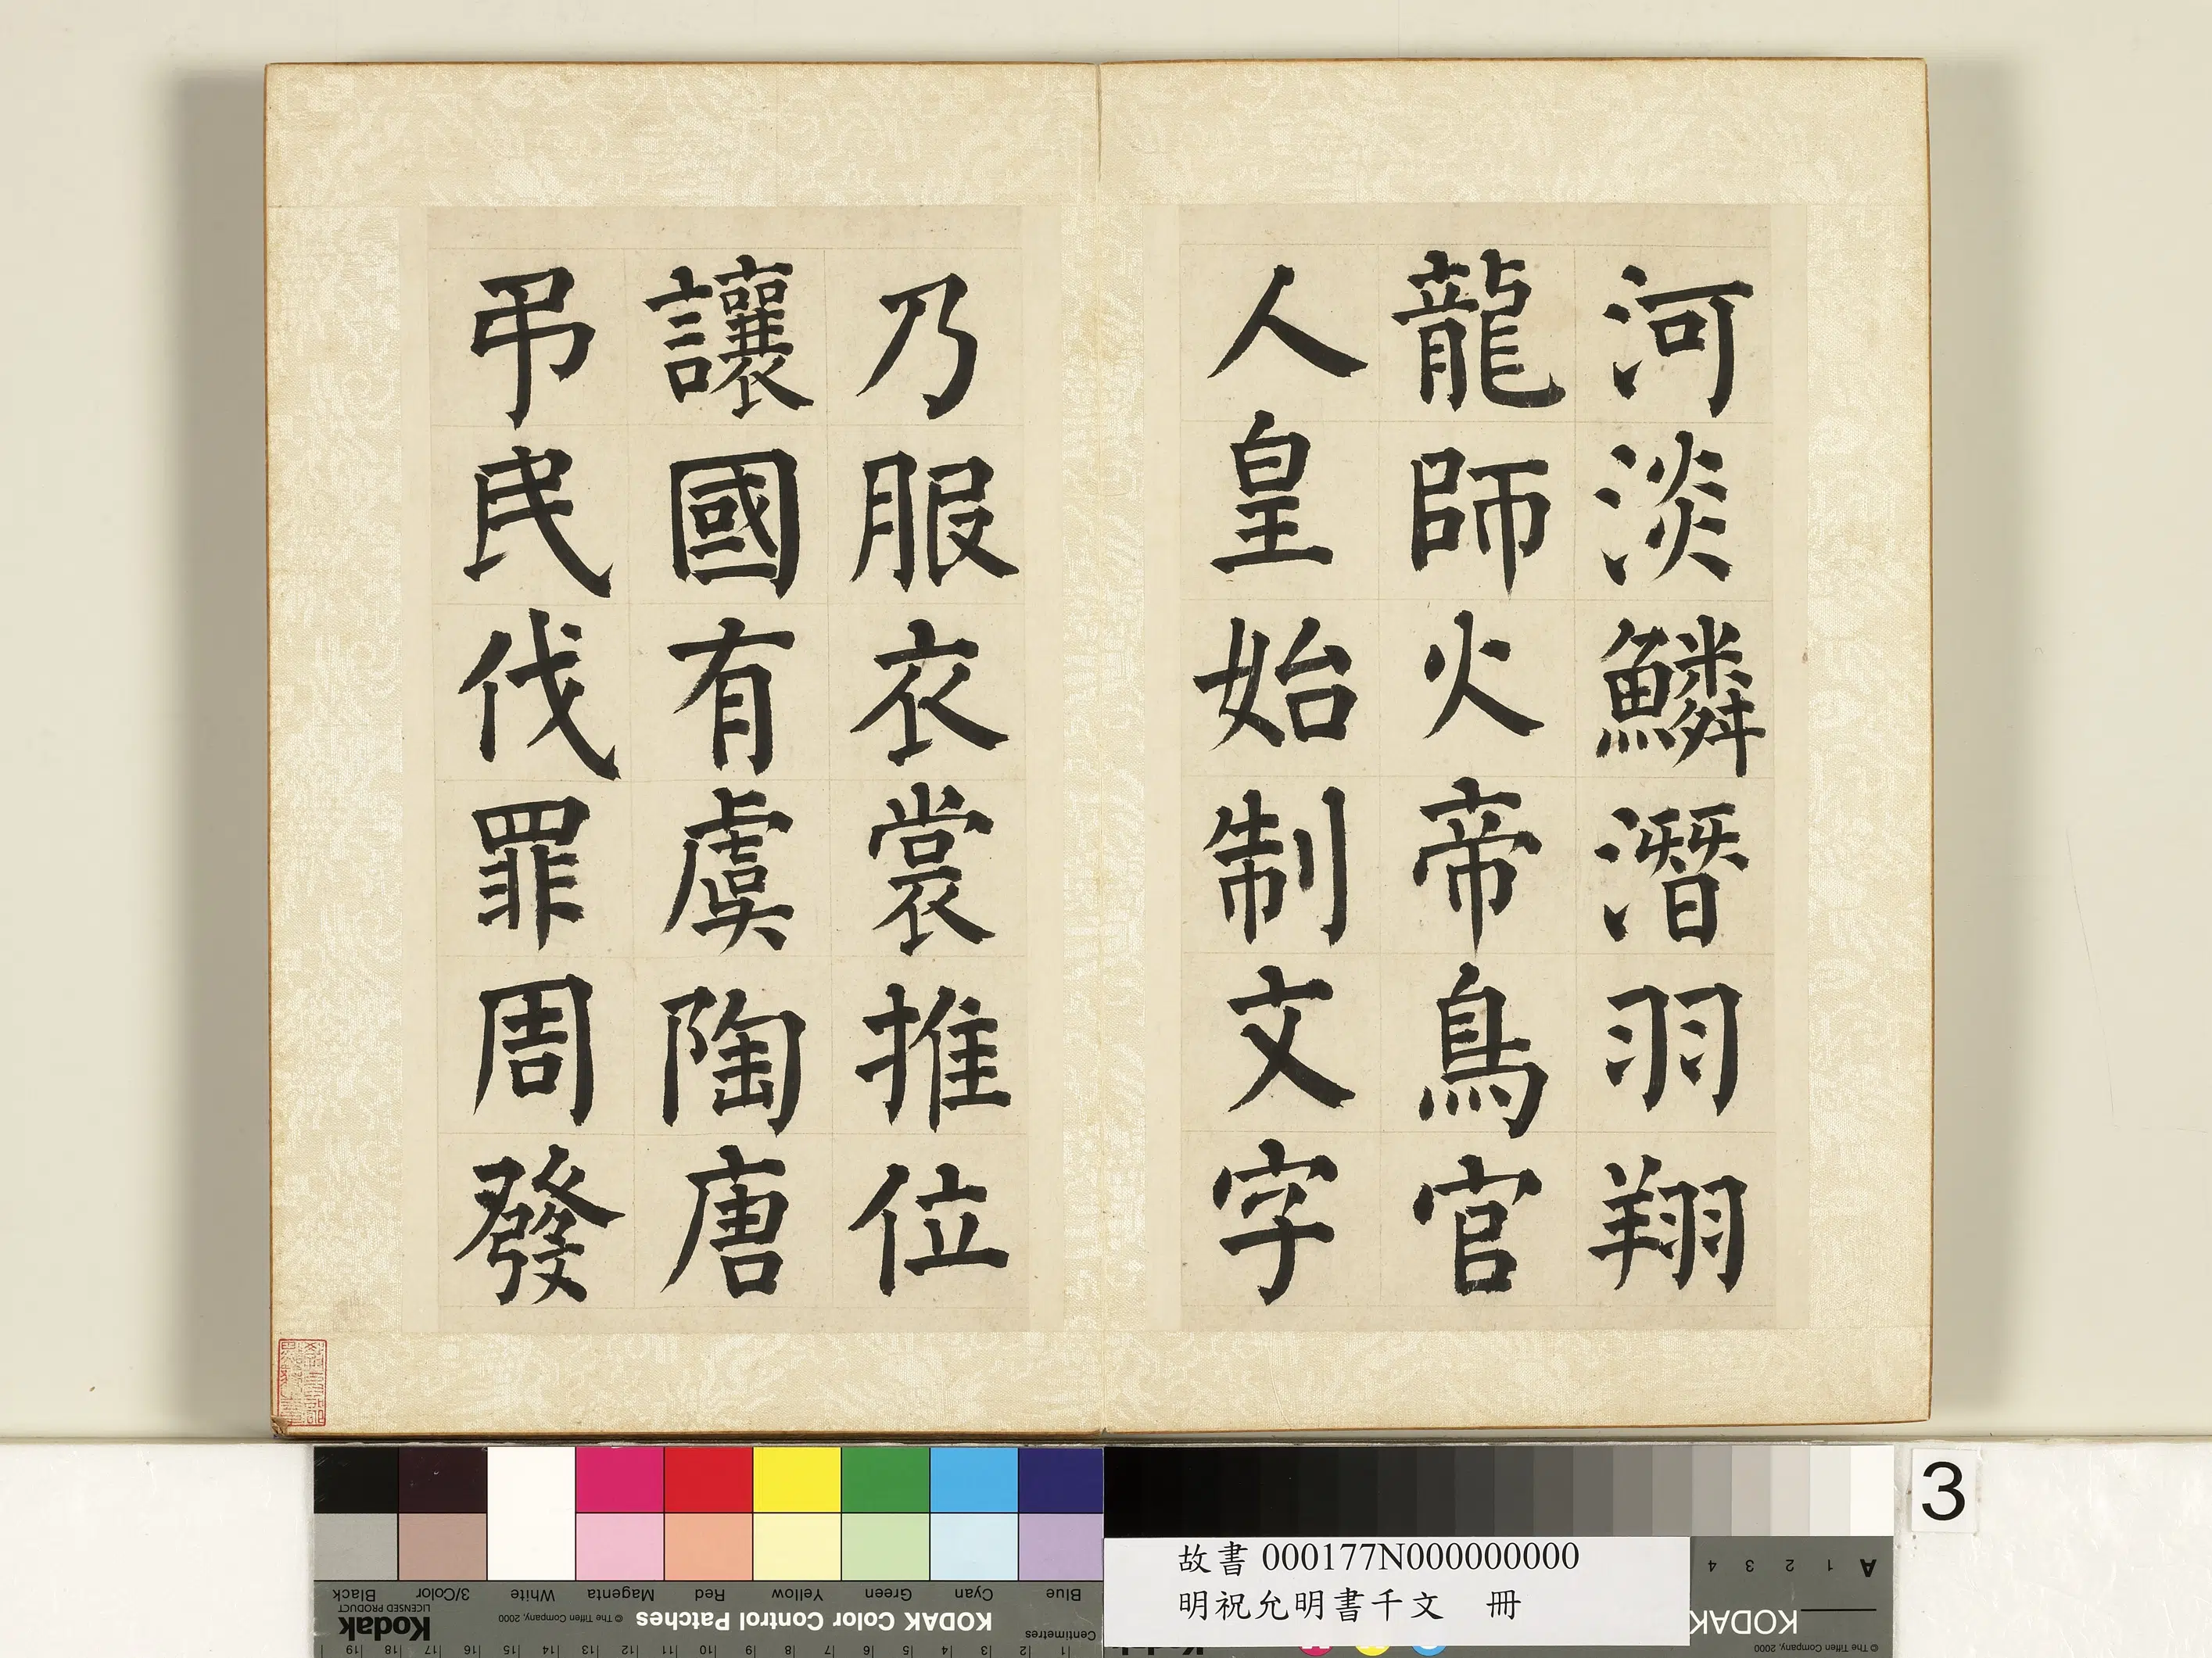 河淡鱗潛羽翔
龍師火帝鳥官
人皇始制文字
乃服衣裳推位
讓國有虞陶唐
弔民伐罪周發
3
故書 000177N000000000
明祝允明書千文 冊
Blue
Cyan
Green
Yellow
Red
Magenta
White
3/Color
Black
KODAK Color Control Patches
© The Tiffen Company, 2000
Kodak
LICENSED PRODUCT
Centimetres
1 2 3 4 5 6 7 8 9 10 11 12 13 14 15 16 17 18 19
A 1 2 3 4
KODAK
© The Tiffen Company, 2000